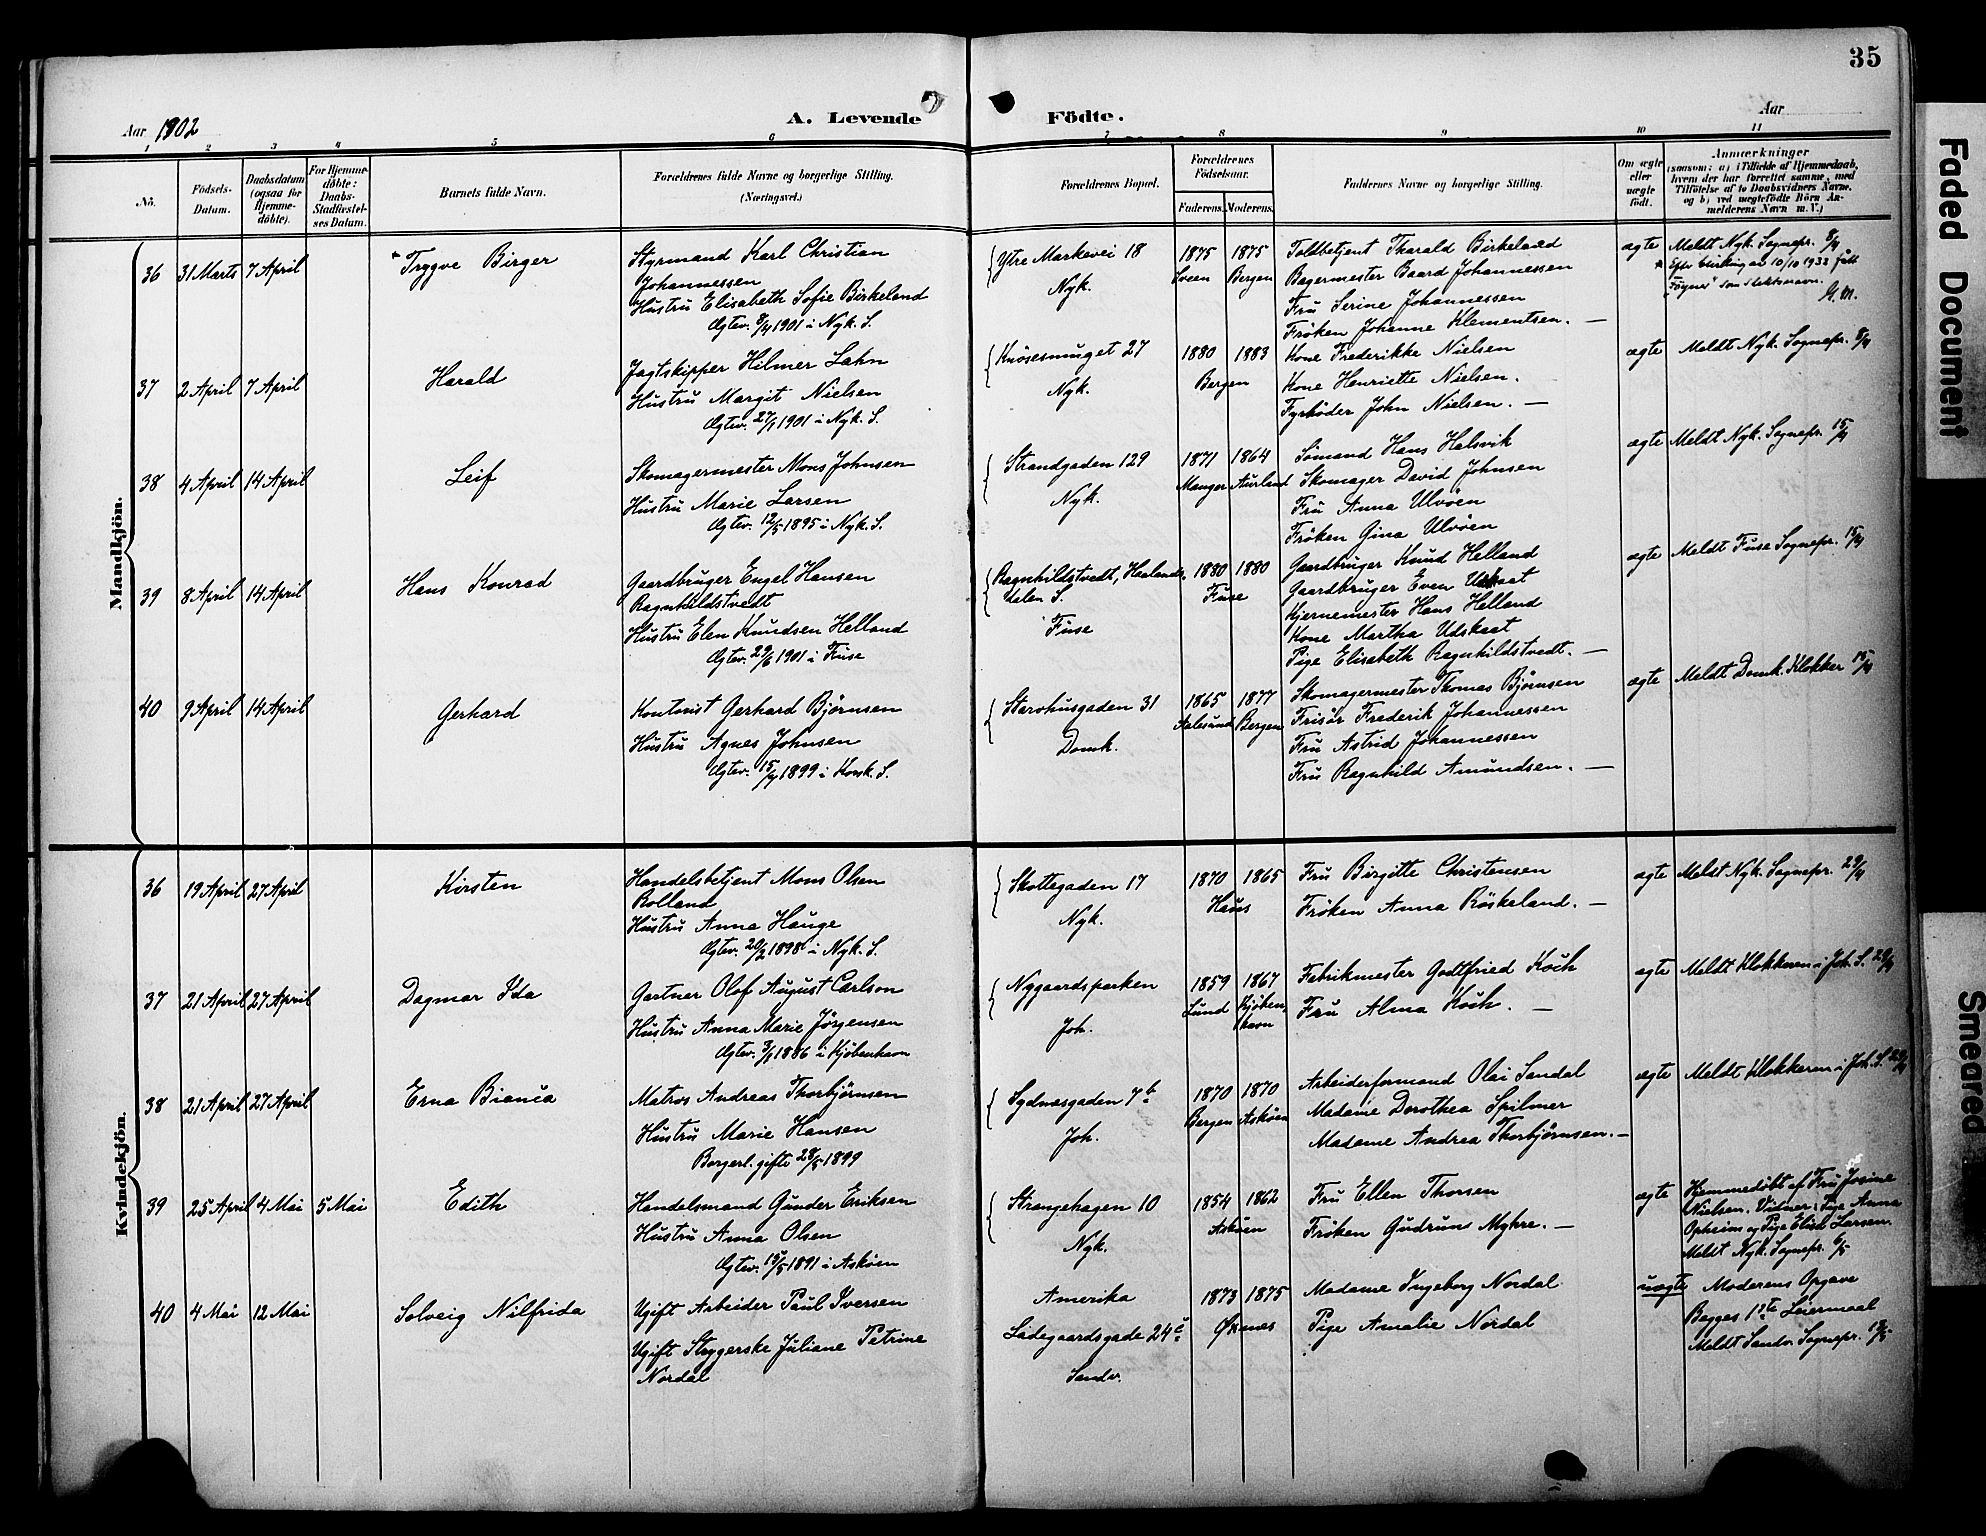 35
Aar 1902
A. Levende Födte.
Aar
1 2 3 4 5 6 7 8 9 10 11
No.
Födsels-Datum.
Daabsdatum (ogsaa for Hjemme-döbte).
For Hjemme-döbte: Daabs-Stadfæstel-ses Datum.
Barnets fulde Navn.
Forældrenes fulde Navne og borgerlige Stilling. (Næringsvei.)
Forældrenes Bopæl.
Forældrenes Födselsaar.
Faderens. Moderens.
Faddernes Navne og borgerlige Stilling.
Om ægte eller uægte födt.
Anmærkninger
(saasom: a) i Tilfælde af Hjemmedaab,
hvem der har forrettet samme, med
Tilföielse af to Daabsvidners Navne,
og b) ved uægtefödte Börn An-
melderens Navn m. V.)
Mandkjön.
36 31 Marts 7 April
* Trygve Birger
Styrmand Karl Christian
Johannessen
Hustru Elisabeth Sofie Birkeland
Ægtev. 8/4 1901 i Nyk. S.
Ytre Markevei 18
Nyk.
1875 1875
Sveen Bergen
Toldbetjent Tharald Birkeland
Bagermester Baard Johannessen
Fru Serine Johannessen
Fröken Johanne Klementsen. —
ægte
Meldt Nyk. Sognepr. 8/4
* Efter bevilling av 10/10 1933 fått
"Fögner" som slektsnavn.
G. M.
37 2 April 7 April
Harald
Jagtskipper Hilmer Lahn
Hustru Margit Nielsen
Ægtev. 27/1 1901 i Nyk. S.
Knösesmuget 27
Nyk.
1880 1883
Bergen
Kone Frederikke Nielsen
Kone Henriette Nielsen.
Fyrböder John Nielsen. —
ægte
Meldt Nyk. Sognepr. 8/4
38 4 April 14 April
Leif
Skomagermester Mons Johnsen
Hustru Marie Larsen
Ægtev. 12/5 1895 i Nyk. S.
Strandgaden 129
Nyk.
1871 1864
Manger Aurland
Sømand Hans Halsvik
Skomager David Johnsen
Fru Anna Ulvöen
Fröken Gina Ulvöen
ægte
Meldt Nyk. Sognepr. 15/4
39 8 April 14 April
Hans Konrad
Gaardbruger Engel Hansen
Ragnhildstvedt
Hustru Elen Knudsen Helland
Ægtev. 29/6 1901 i Fuse
Ragnhildstvedt, Haalands-
dalen S.
Fuse
1880 1880
Fuse
Gaardbruger Knud Helland
Gaardbruger Even Udskaat
Kjernemester Hans Helland
Kone Martha Udskaat
Pige Elisabeth Ragnhildstvedt. —
ægte
Meldt Fuse Sognepr. 15/4
40 9 April 14 April
Gerhard
Kontorist Gerhard Björnsen
Hustru Agnes Johnsen
Ægtev. 15/4 1899 i Korsk. S.
Starohusgaden 31
Domk.
1865 1877
Aalesund Bergen
Skomagermester Thomas Björnsen
Frisör Frederik Johannessen
Fru Astrid Johannessen
Fru Ragnhild Amundsen. —
ægte
Meldt Domk. Klokker 15/4
Kvindekjön.
36 19 April 27 April
Kirsten
Handelsbetjent Mons Olsen
Rolland
Hustru Anna Hauge
Ægtev. 20/2 1898 i Nyk. S.
Skottegaden 17
Nyk.
1870 1865
Haus
Fru Birgitte Christensen
Fröken Anna Röskeland. —
ægte
Meldt Nyk. Sognepr. 29/4
37 21 April 27 April
Dagmar Ida
Gartner Olof August Carlson
Hustru Anna Marie Jörgensen
Ægtev. 3/1 1886 i Kjöbenhavn
Nygaardsparken
Joh.
1859 1867
Lund Kjöben-
havn
Fabrikmester Godtfried Koch
Fru Alma Koch. —
ægte
Meldt Klokkeren i Joh. S. 29/4
38 21 April 27 April
Erna Bianca
Matros Andreas Thorbjörnsen
Hustru Marie Hansen
Borgerl. gifte 28/5 1899
Sydnæsgaden 7b
Joh.
1870 1870
Bergen Asköen
Arbeiderformand Olai Sandal
Madame Dorothea Spilmer
Madame Andrea Thorbjörnsen. —
ægte
Meldt Klokkeren i Joh. S. 29/4
39 25 April 4 Mai 5 Mai
Edith
Handelsmand Gunder Eriksen
Hustru Anna Olsen
Ægtev. 15/5 1891 i Asköen
Strangehagen 10
Nyk.
1854 1862
Asköen
Fru Ellen Thorsen
Fröken Gudrun Myhre. —
ægte
Hjemmedöbt af Fru Josine
Nielsen. Vidner: Pige Anna
Opheim og Pige Elise Larsen.
Meldt Nyk. Sognepr. 6/5
40 4 Mai 12 Mai
Solveig Nilfrida
Ugift Arbeider Paul Iversen
Ugift Strygerske Juliane Petrine
Nordal
Amerika
Ladegaardsgade 24c
Sandv.
1873 1875
Øksnes
Madame Ingeborg Nordal
Pige Amalie Nordal
uægte
Moderens Opgave
Begges 1ste Leiermaal
Meldt Sandv. Sognepr. 13/5
Faded Document
Smeared